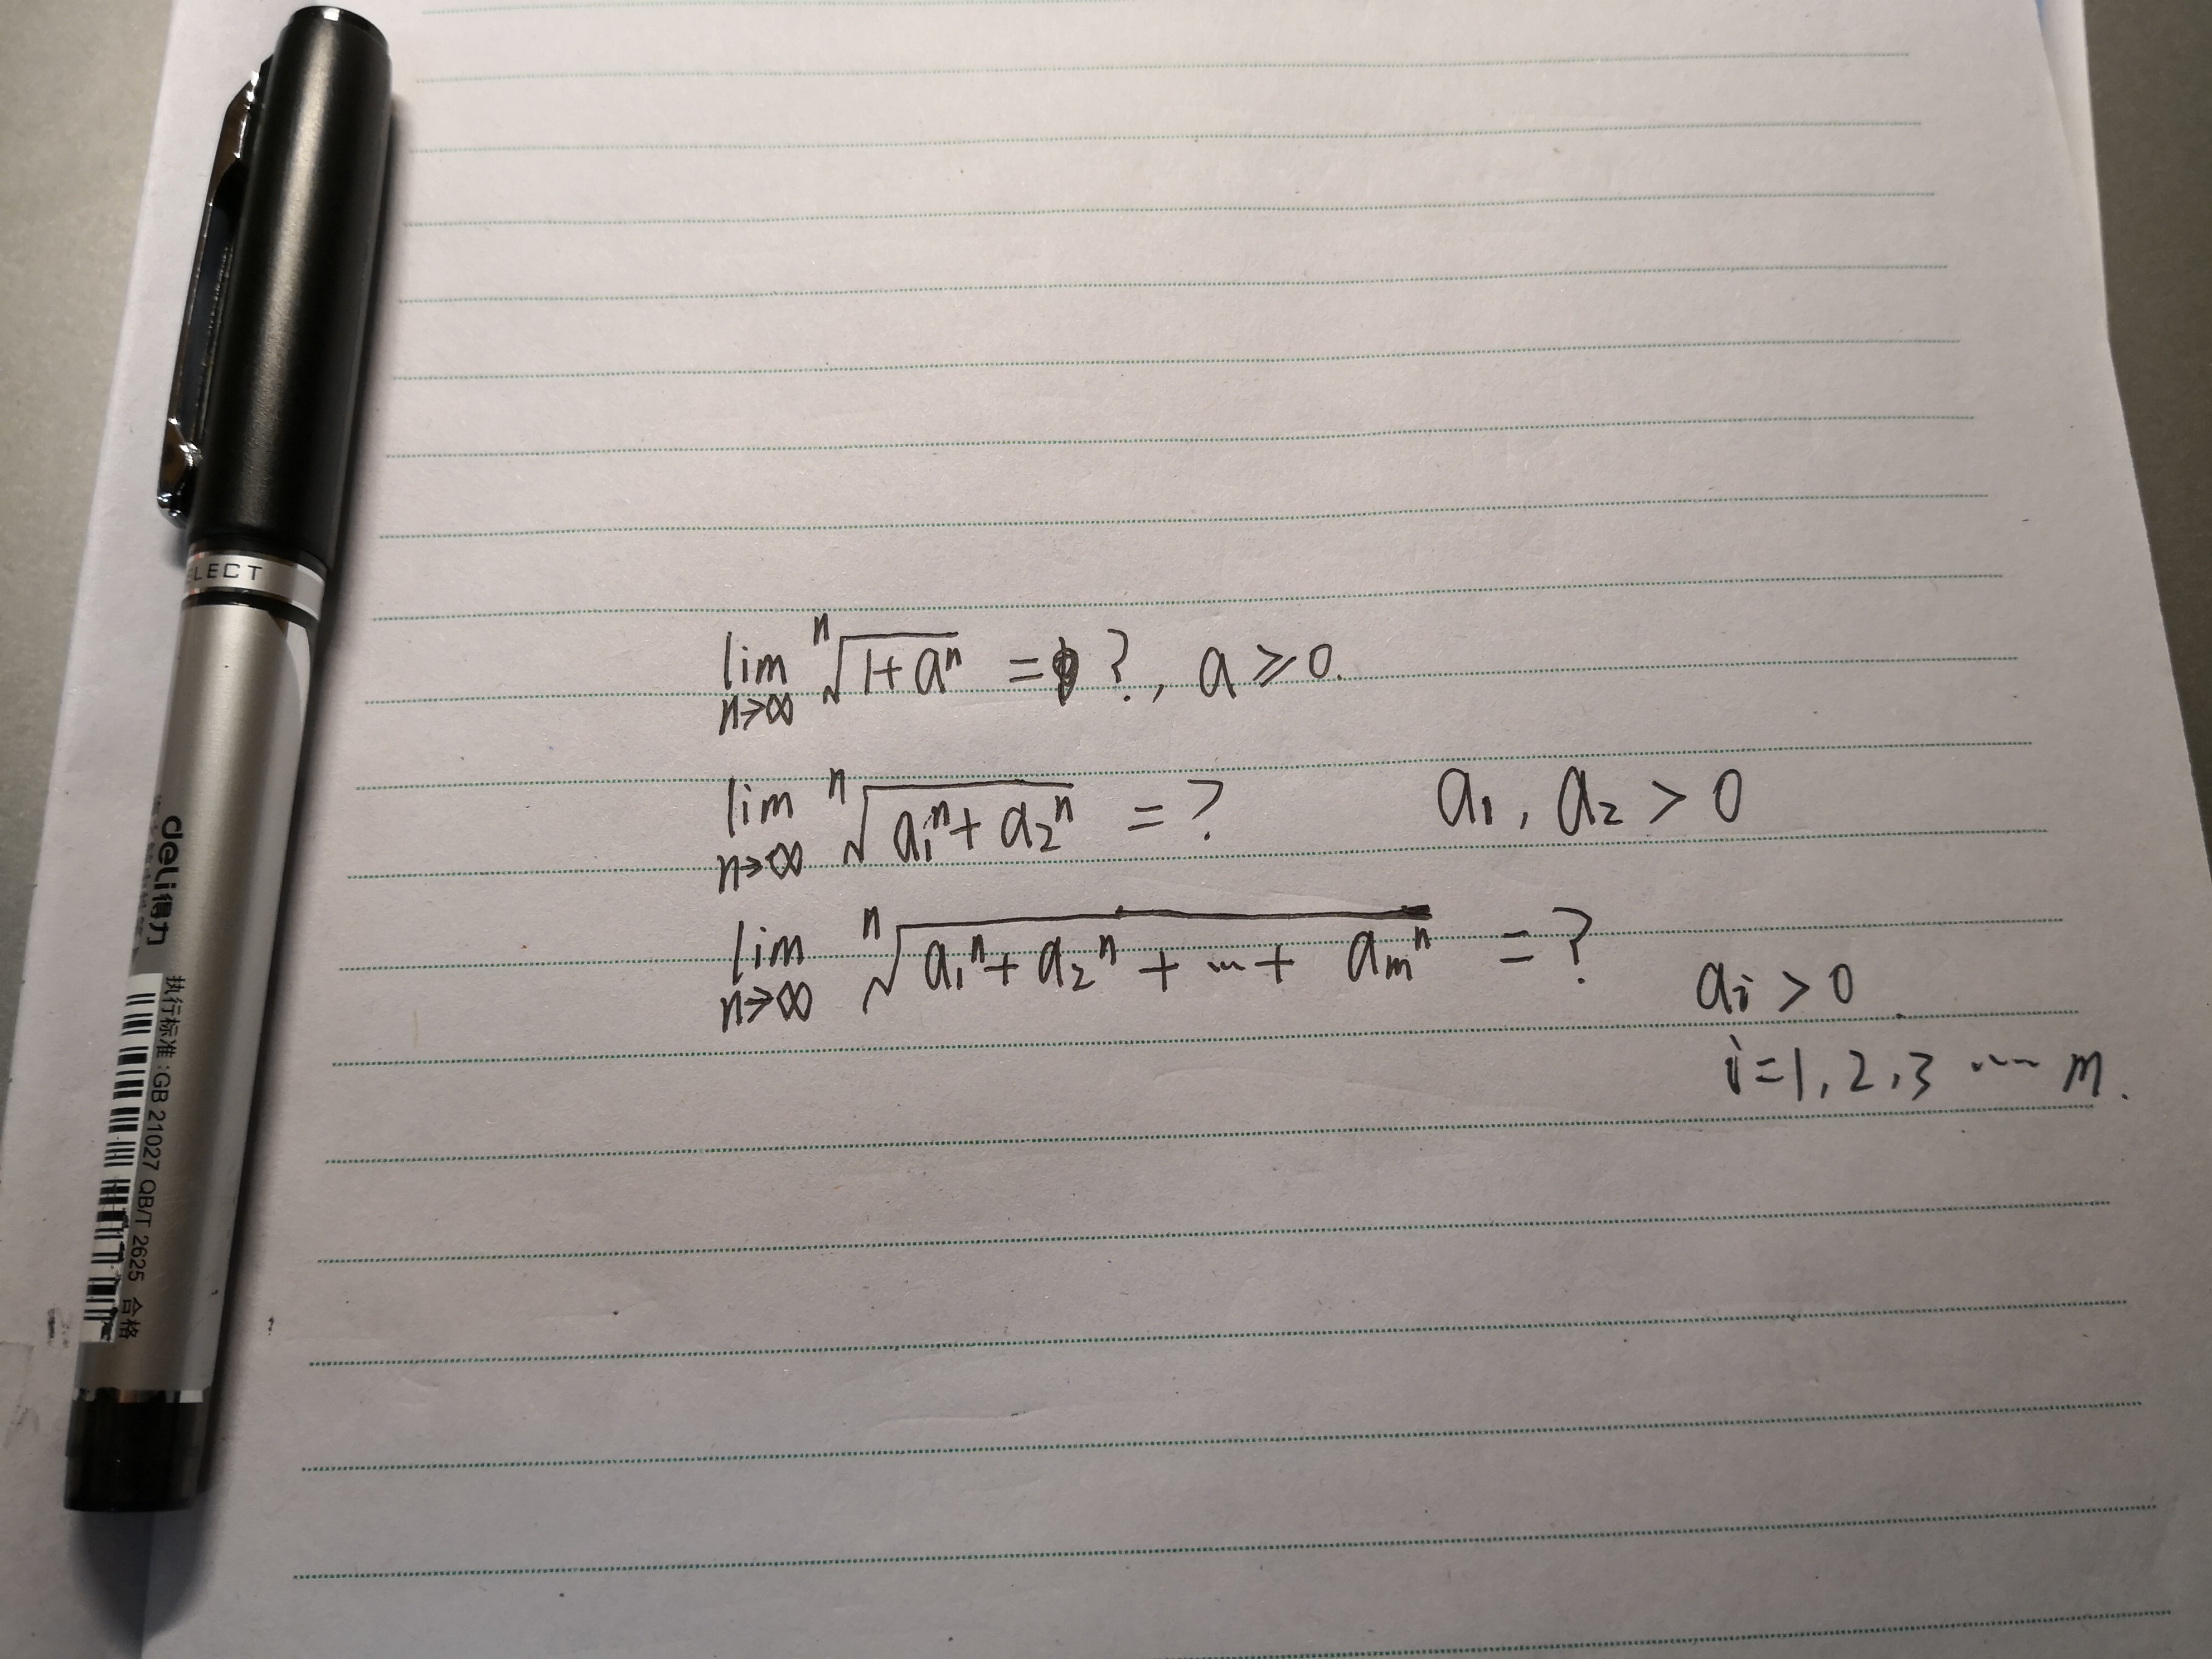 ELECT
deli得力
执行标准:GB 21027 QB/T 2625 合格
lim n→∞ ⁿ√(1+aⁿ) = ?, a ≥ 0.
lim n→∞ ⁿ√(a₁ⁿ + a₂ⁿ) = ? a₁, a₂ > 0
lim n→∞ ⁿ√(a₁ⁿ + a₂ⁿ + ... + aₘⁿ) = ?
aᵢ > 0.
i=1, 2, 3 ... m.